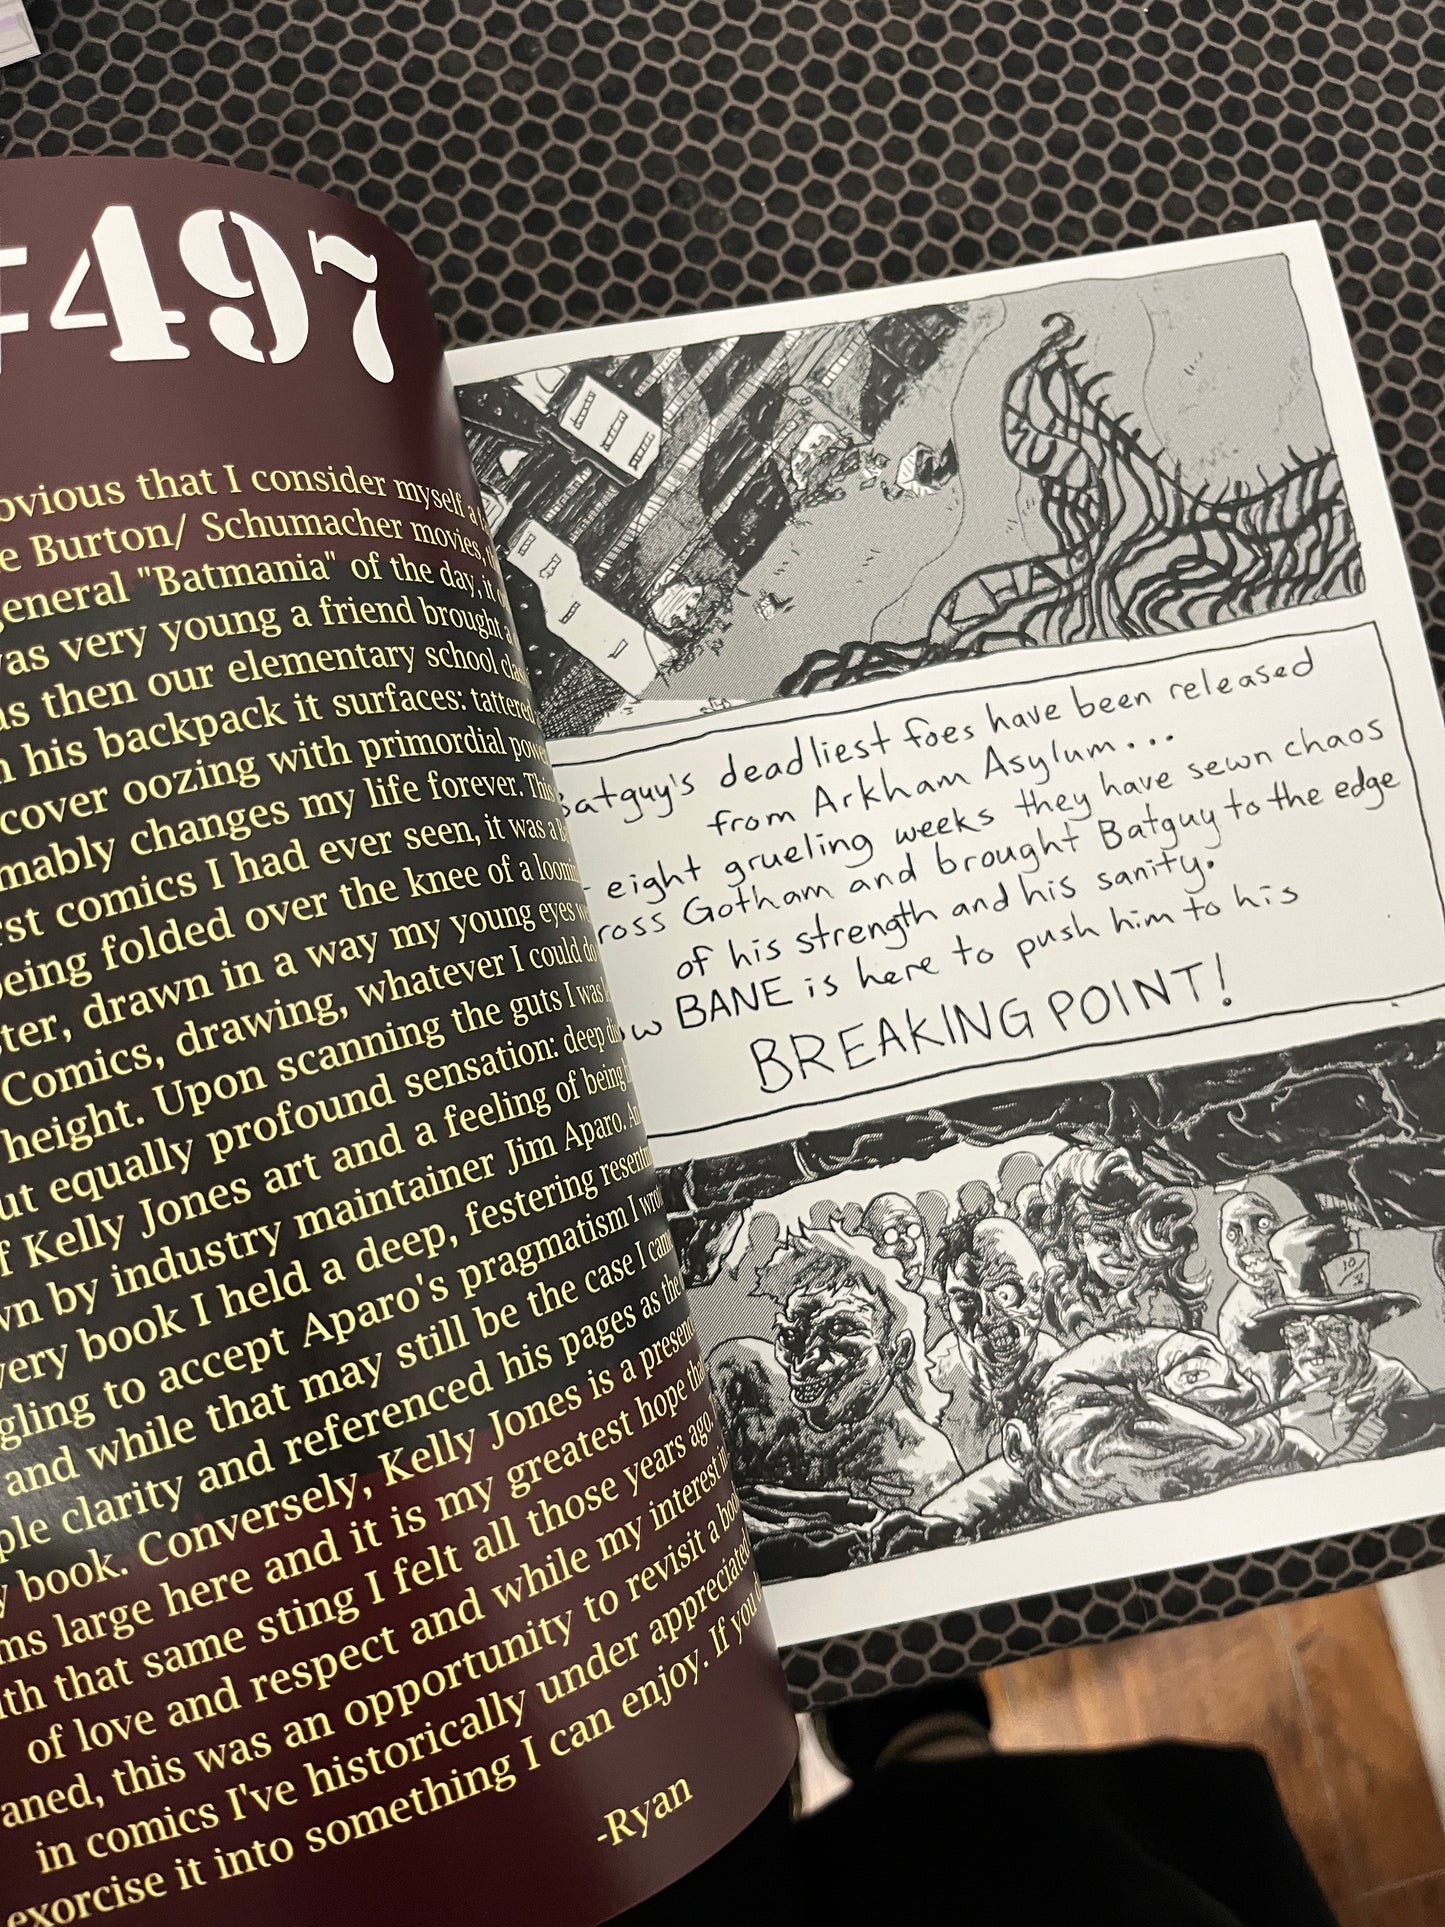 #497
obvious that I consider myself a
Burton/ Schumacher movies,
general "Batmania" of the day, it
was very young a friend brought a
then our elementary school
his backpack it surfaces: tattered
cover oozing with primordial power
changes my life forever. This
comics I had ever seen, it was a
being folded over the knee of a
drawn in a way my young eyes
Comics, drawing, whatever I could do
height. Upon scanning the guts I was
but equally profound sensation: deep
of Kelly Jones art and a feeling of being
by industry maintainer Jim Aparo.
every book I held a deep, festering
to accept Aparo's pragmatism I
and while that may still be the case I
clarity and referenced his pages as the
book. Conversely, Kelly Jones is a
large here and it is my greatest hope
with that same sting I felt all those years ago.
of love and respect and while my interest
this was an opportunity to revisit a book
in comics I've historically under appreciated
exorcise it into something I can enjoy. If you
-Ryan
ARKHA
Batguy's deadliest foes have been released
from Arkham Asylum...
eight grueling weeks they have sewn chaos
Gotham and brought Batguy to the edge
of his strength and his sanity.
BANE is here to push him to his
BREAKING POINT!
10